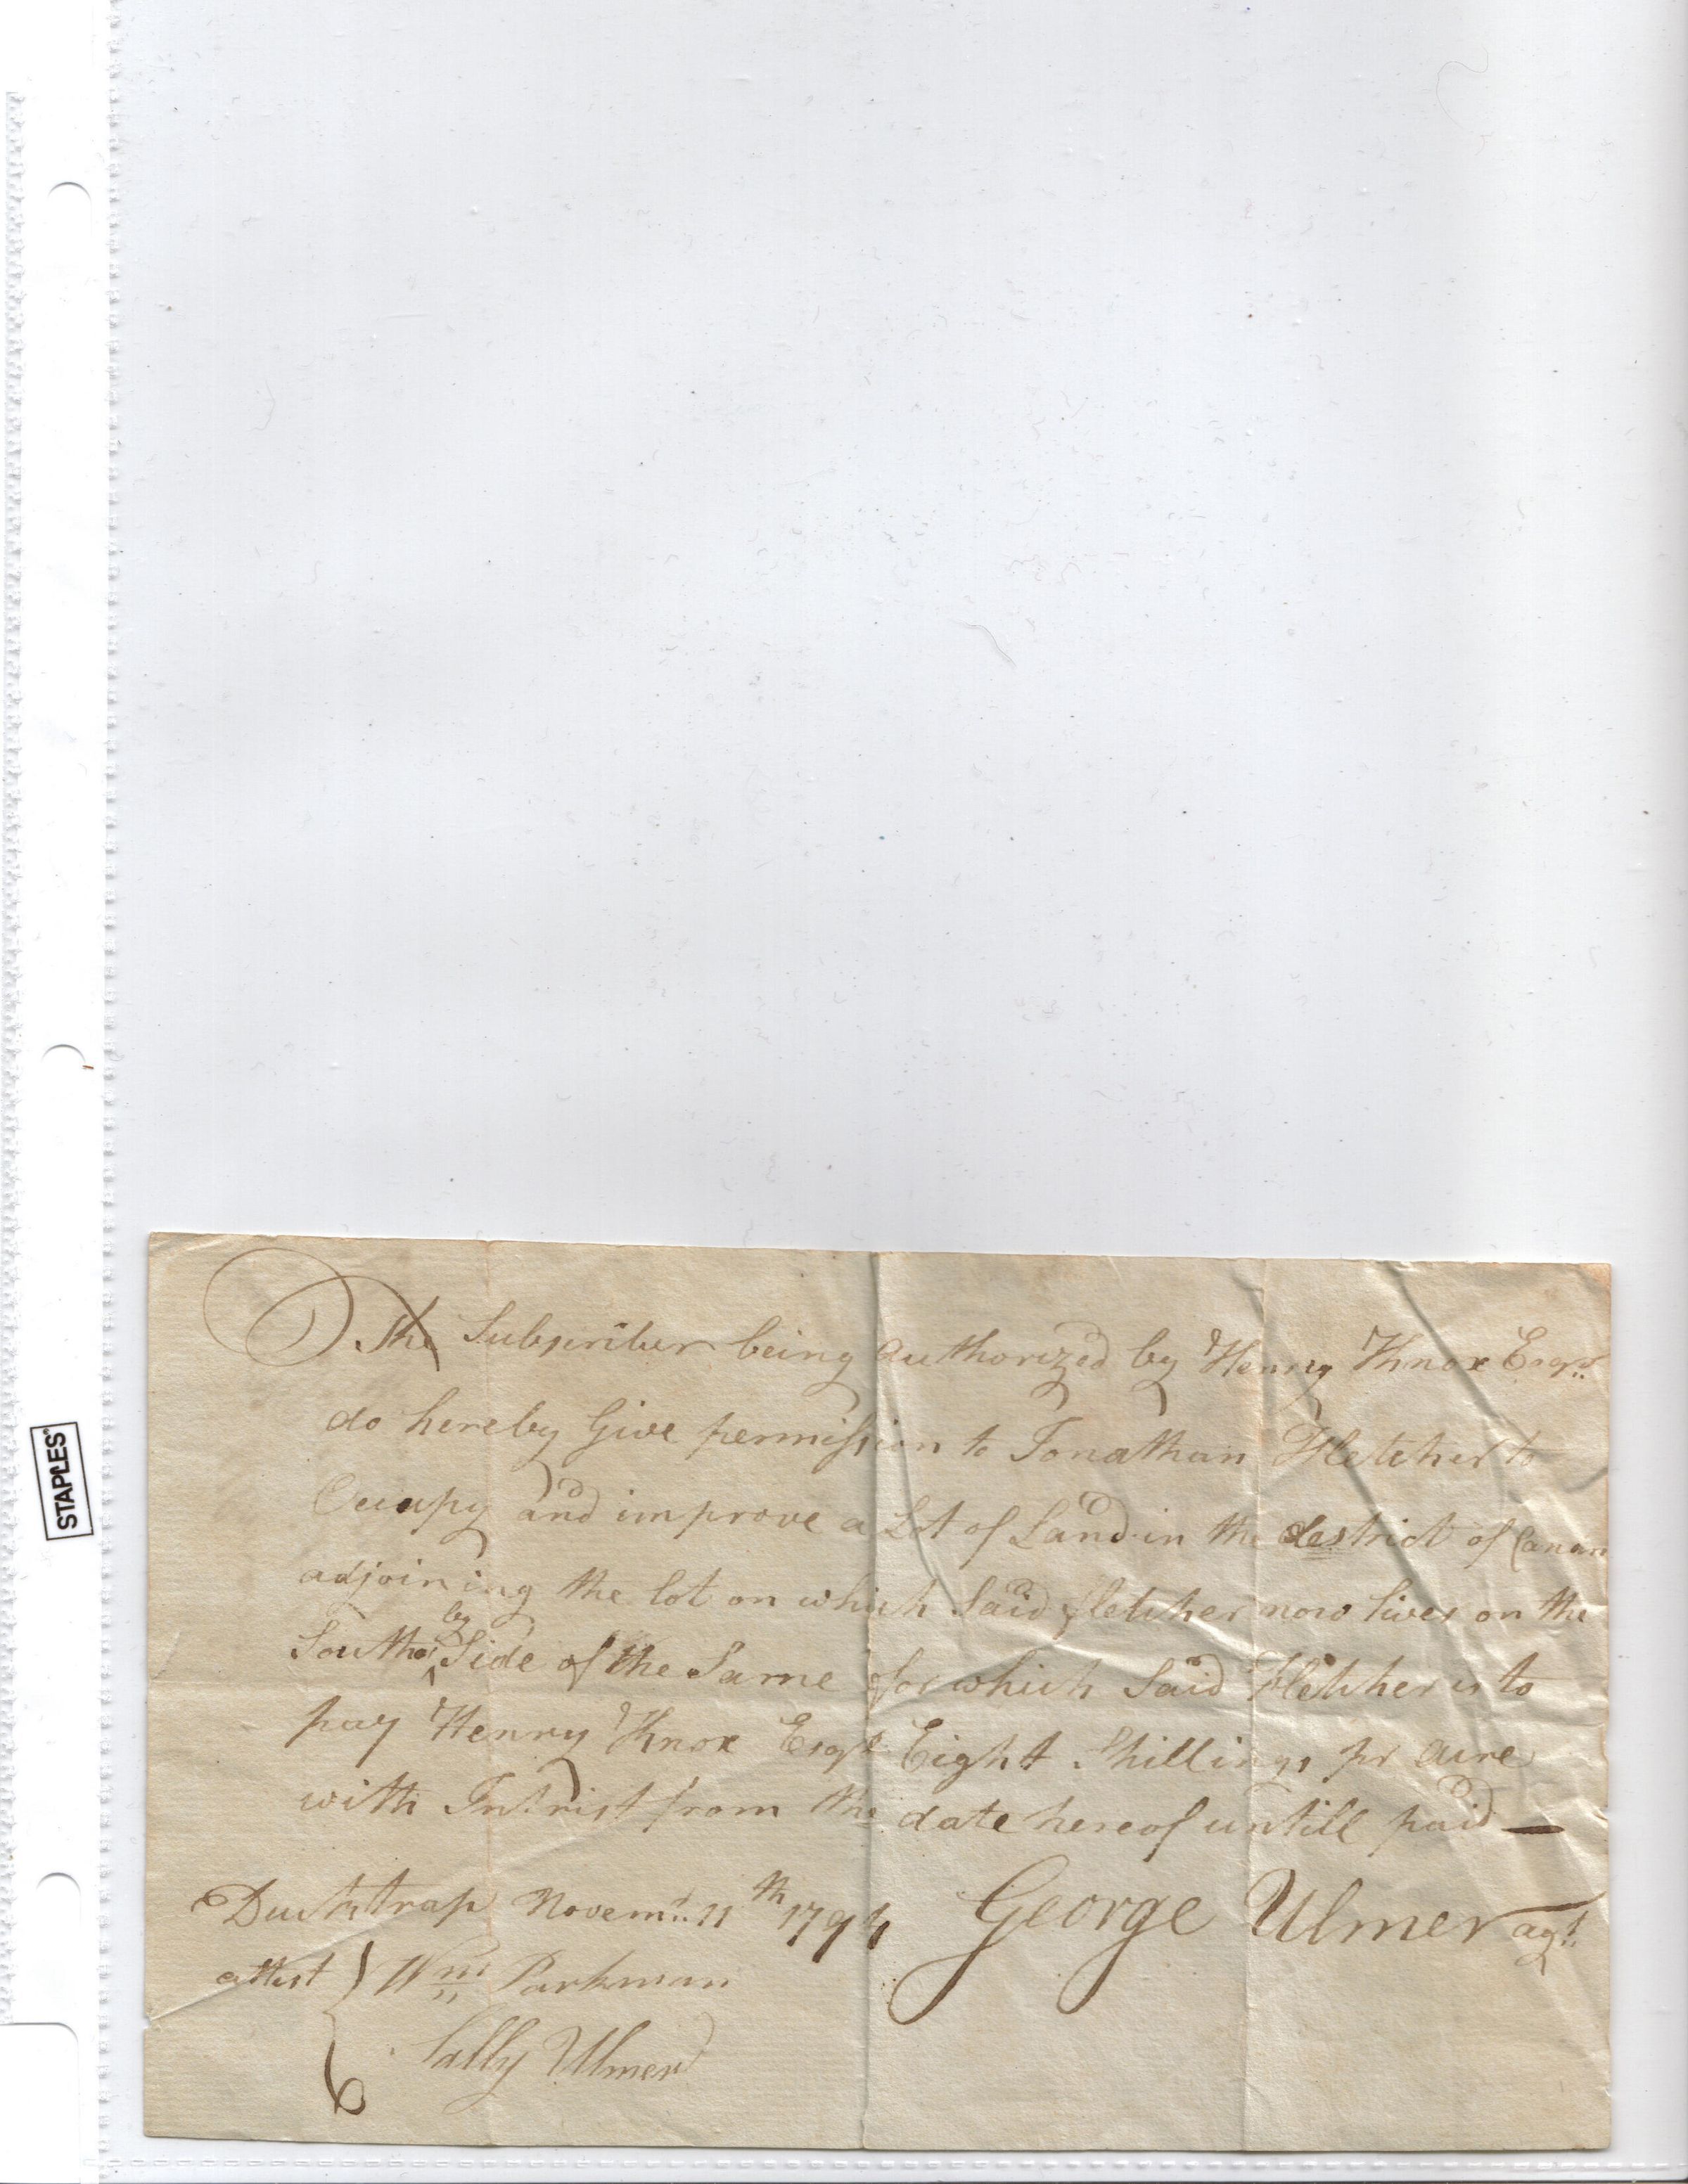 The Subscriber being authorized by Henry Knox Esqr.
do hereby Give permission to Jonathan Fletcher to
Occupy and improve a Lot of Land in the destrict of Canan
adjoining the lot on which Said fletcher now lives on the
Souther by Side of the Same for which Said Fletcher is to
pay Henry Knox Esqr Eight Shillings pr acre
with Intrist from the date hereof untill paid —
Ducktrap Novemr. 11th 1794 George Ulmer agt.
attest } Wm Parkman
Sally Ulmer
STAPLES